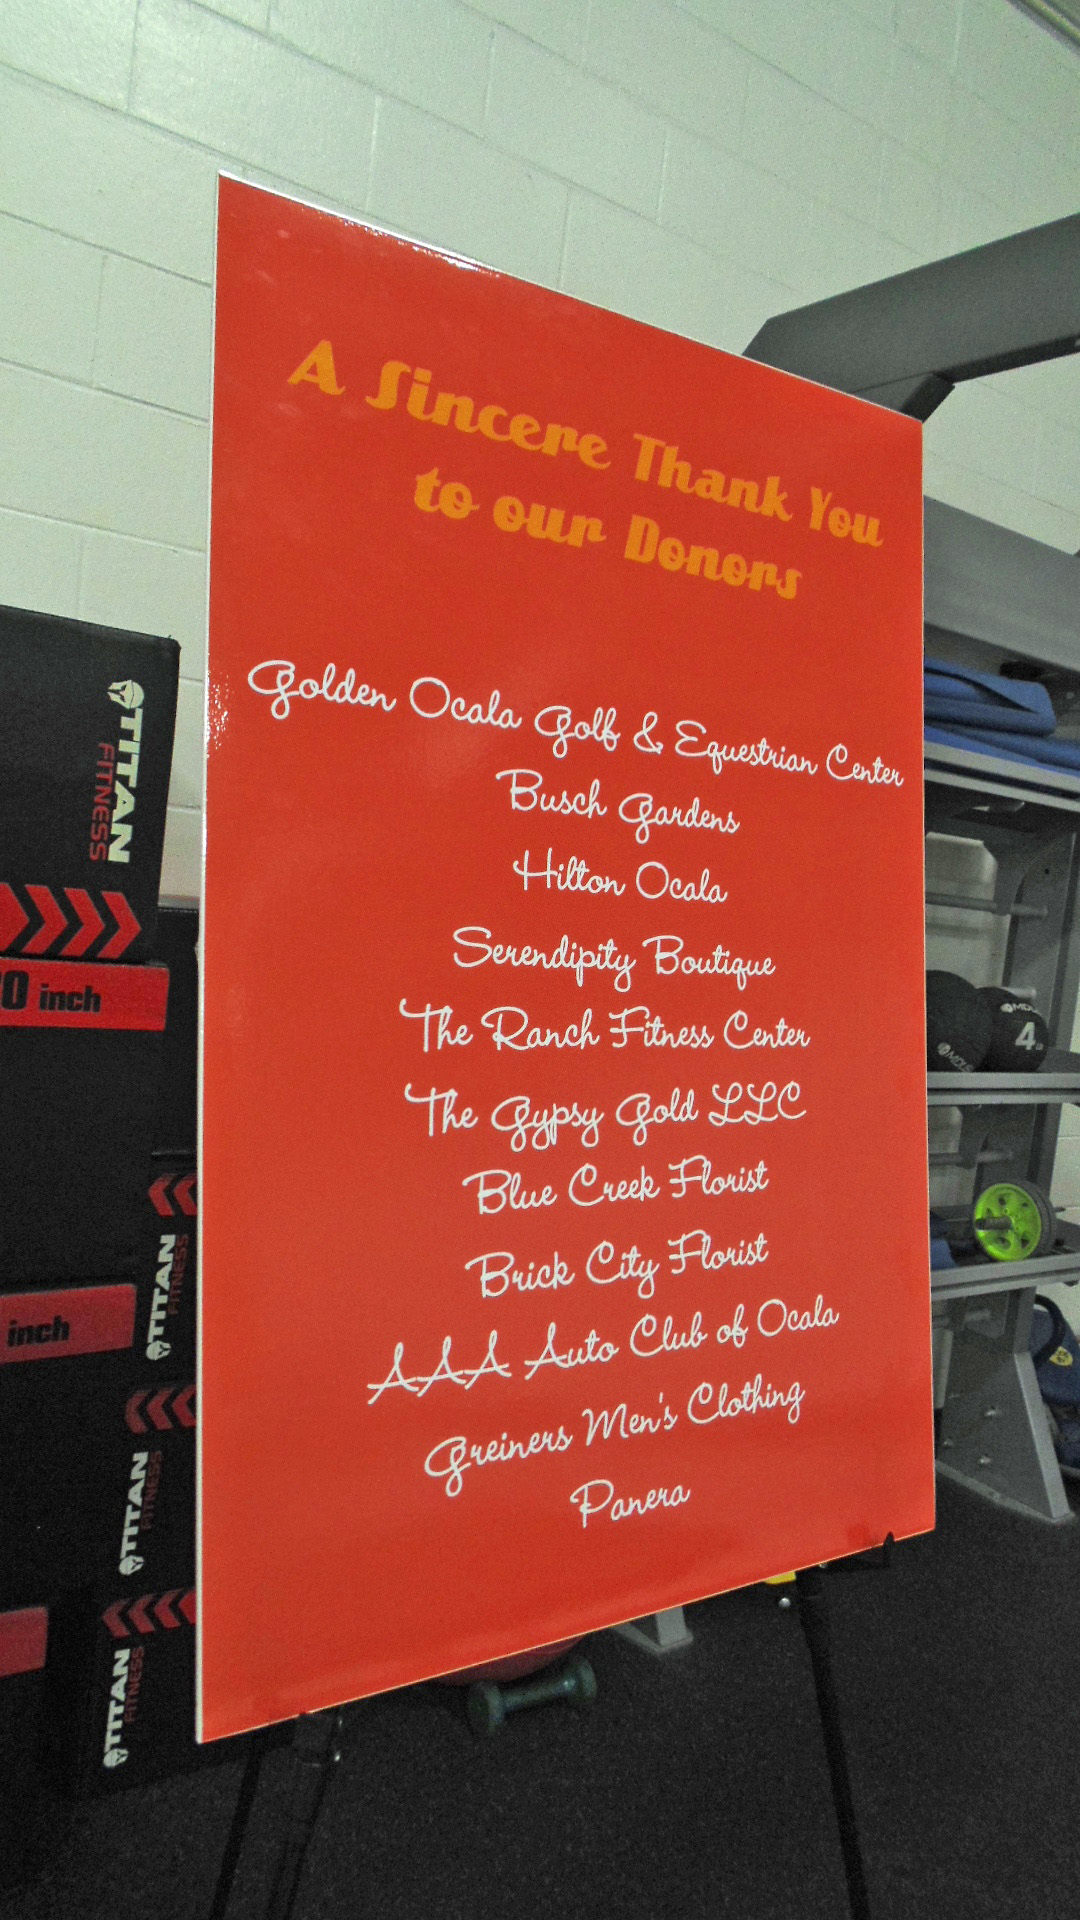 A Sincere Thank You
to our Donors
Golden Ocala Golf & Equestrian Center
Busch Gardens
Hilton Ocala
Serendipity Boutique
The Ranch Fitness Center
The Gypsy Gold LLC
Blue Creek Florist
Brick City Florist
AAA Auto Club of Ocala
Greiners Men's Clothing
Panera
TITAN
FITNESS
0 inch
TITAN
FITNESS
inch
TITAN
FITNESS
TITAN
FITNESS
4